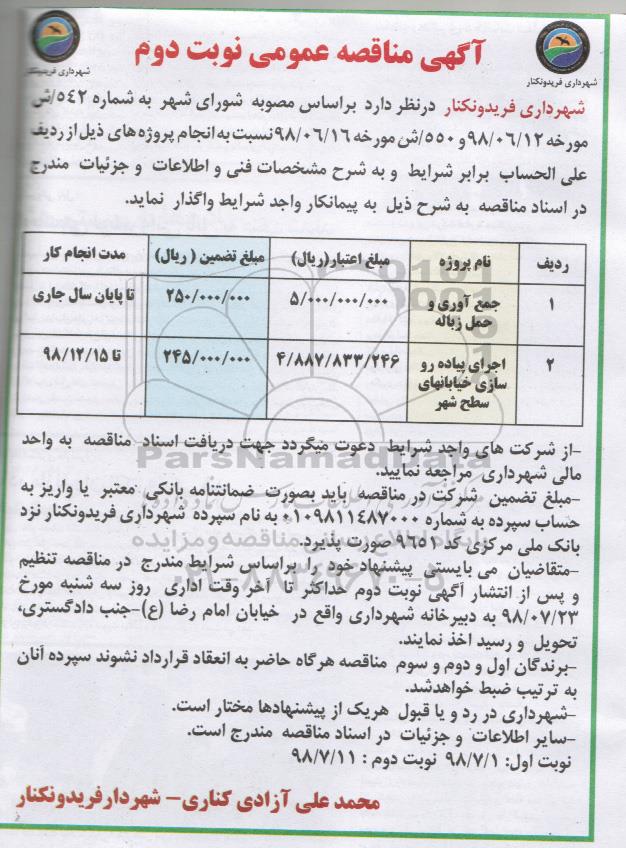 آگهی مناقصه عمومی نوبت دوم
شهرداری فریدونکنار
شهرداری فریدونکنار
شهرداری فریدونکنار درنظر دارد براساس مصوبه شورای شهر به شماره ۵۴۲/ش
مورخه ۹۸/۰۶/۱۲ و ۵۵۰/ش مورخه ۹۸/۰۶/۱۶ نسبت به انجام پروژه های ذیل از ردیف
علی الحساب برابر شرایط و به شرح مشخصات فنی و اطلاعات و جزئیات مندرج
در اسناد مناقصه به شرح ذیل به پیمانکار واجد شرایط واگذار نماید.
ردیف نام پروژه مبلغ اعتبار(ریال) مبلغ تضمین ( ریال) مدت انجام کار
۱ جمع آوری و حمل زباله ۵/۰۰۰/۰۰۰/۰۰۰ ۲۵۰/۰۰۰/۰۰۰ تا پایان سال جاری
۲ اجرای پیاده رو سازی خیابانهای سطح شهر ۴/۸۸۷/۸۳۳/۲۴۶ ۲۴۵/۰۰۰/۰۰۰ تا ۹۸/۱۲/۱۵
-از شرکت های واجد شرایط دعوت میگردد جهت دریافت اسناد مناقصه به واحد
مالی شهرداری مراجعه نمایید.
-مبلغ تضمین شرکت در مناقصه باید بصورت ضمانتنامه بانکی معتبر یا واریز به
حساب سپرده به شماره ۰۱۰۹۸۱۱۴۸۷۰۰۰ به نام سپرده شهرداری فریدونکنار نزد
بانک ملی مرکزی کد ۹۶۵۱ صورت پذیرد.
-متقاضیان می بایستی پیشنهاد خود را براساس شرایط مندرج در مناقصه تنظیم
و پس از انتشار آگهی نوبت دوم حداکثر تا آخر وقت اداری روز سه شنبه مورخ
۹۸/۰۷/۲۳ به دبیرخانه شهرداری واقع در خیابان امام رضا (ع)-جنب دادگستری،
تحویل و رسید اخذ نمایند.
-برندگان اول و دوم و سوم مناقصه هرگاه حاضر به انعقاد قرارداد نشوند سپرده آنان
به ترتیب ضبط خواهدشد.
-شهرداری در رد و یا قبول هریک از پیشنهادها مختار است.
-سایر اطلاعات و جزئیات در اسناد مناقصه مندرج است.
نوبت اول: ۹۸/۷/۱ نوبت دوم : ۹۸/۷/۱۱
محمد علی آزادی کناری- شهردارفریدونکنار
ParsNamadData